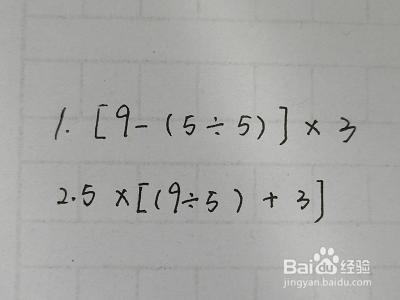 1. [9-(5÷5)]×3
2. 5×[(9÷5)+3]
Baidu经验
jingyan.baidu.com